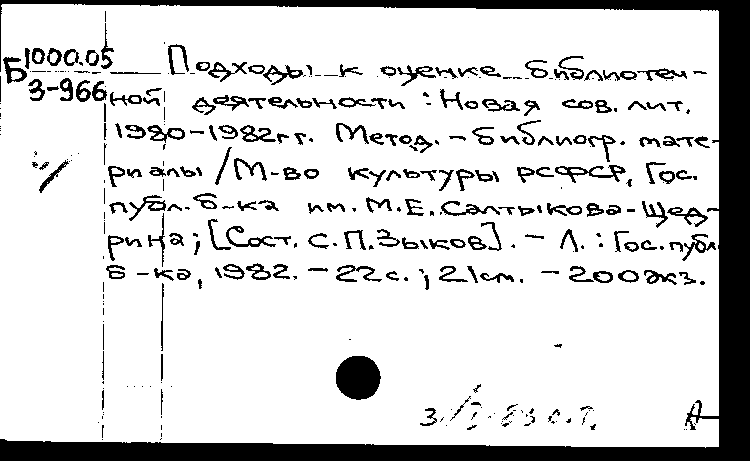 Б 1000.05
3-966
Подходы к оценке библиотеч-
ной деятельности : Новая сов. лит.
1980-1982гг. Метод. - библиогр. мате-
риалы / М-во культуры РСФСР, Гос.
публ. б-ка им. М.Е. Салтыкова-Щед-
рина ; [Сост. С.П. Зыков]. - Л. : Гос. публ.
б-ка, 1982. - 22с. ; 21см. - 200экз.
3/I-83 о.т.
А-